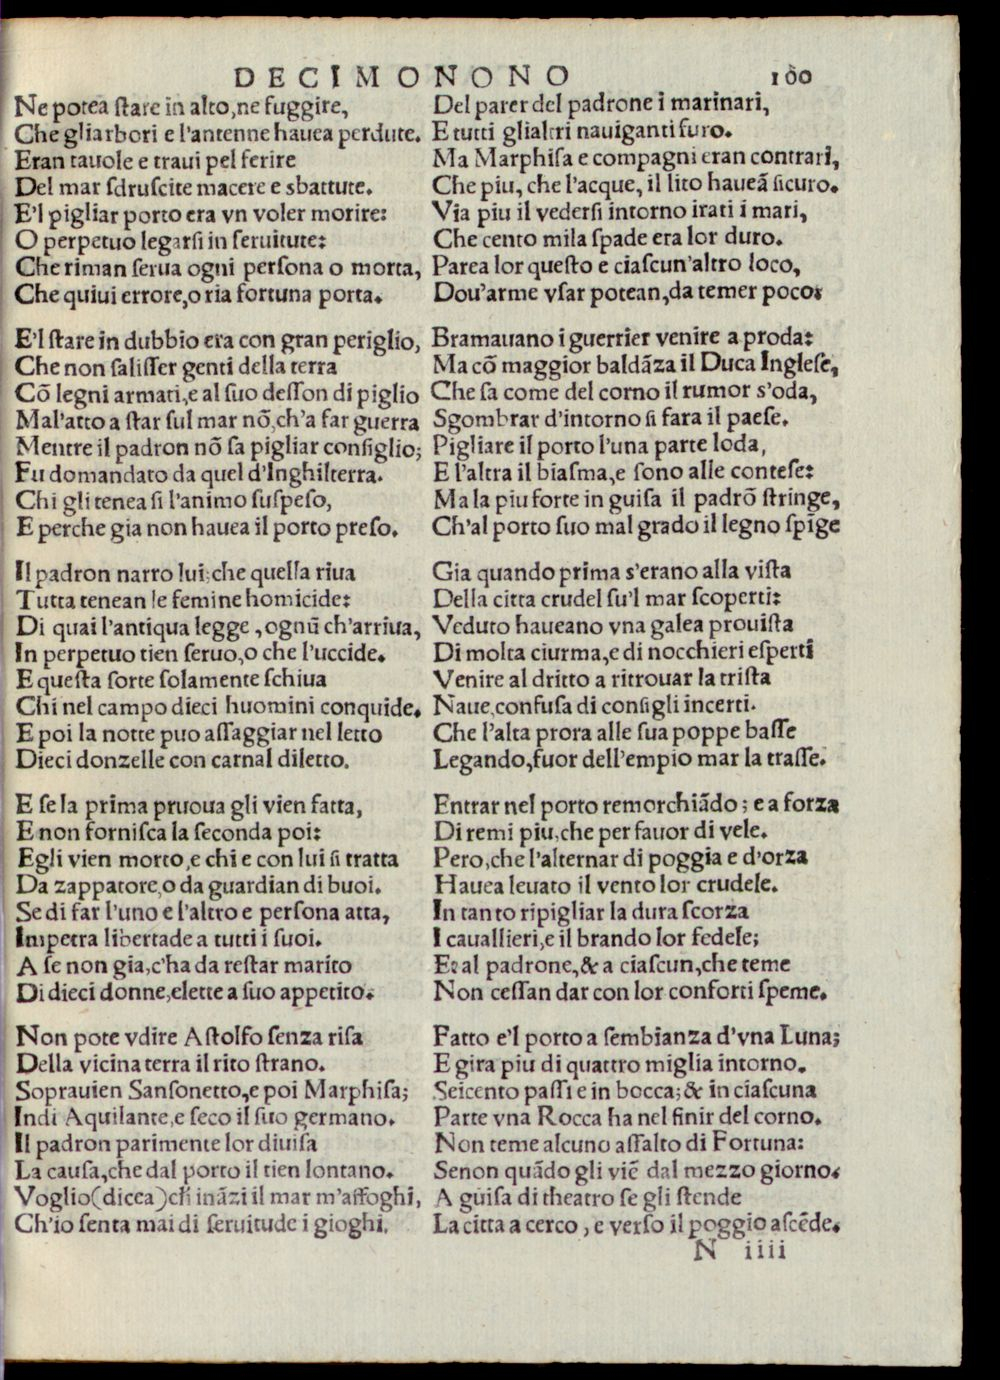 DECIMONONO 100
Ne potea ſtare in alto, ne fuggire,
Che gliarbori e l'antenne hauea perdute.
Eran tauole e traui pel ferire
Del mar ſdruſcite macere e sbattute.
E'l pigliar porto era vn voler morire:
O perpetuo legarſi in ſeruitute:
Che riman ſerua ogni perſona o morta,
Che quiui errore, o ria fortuna porta.
E'l ſtare in dubbio era con gran periglio,
Che non ſaliſſer genti della terra
Cõ legni armati, e al ſuo deſſon di piglio
Mal'atto a ſtar ſul mar nõ, ch'a far guerra
Mentre il padron nõ ſa pigliar conſiglio;
Fu domandato da quel d'Inghilterra.
Chi gli tenea ſi l'animo ſuſpeſo,
E perche gia non hauea il porto preſo.
Il padron narro lui, che quella riua
Tutta tenean le femine homicide:
Di quai l'antiqua legge, ognũ ch'arriua,
In perpetuo tien ſeruo, o che l'uccide.
E queſta ſorte ſolamente ſchiua
Chi nel campo dieci huomini conquide.
E poi la notte puo aſſaggiar nel letto
Dieci donzelle con carnal diletto.
E ſe la prima pruoua gli vien fatta,
E non forniſca la ſeconda poi:
Egli vien morto, e chi e con lui ſi tratta
Da zappatore, o da guardian di buoi.
Se di far l'uno e l'altro e perſona atta,
Impetra libertade a tutti i ſuoi.
A ſe non gia, c'ha da reſtar marito
Di dieci donne, elette a ſuo appetito.
Non pote vdire Aſtolfo ſenza riſa
Della vicina terra il rito ſtrano.
Soprauien Sanſonetto, e poi Marphiſa;
Indi Aquilante, e ſeco il ſuo germano.
Il padron parimente lor diuiſa
La cauſa, che dal porto il tien lontano.
Voglio (dicea) ch' inãzi il mar m'affoghi,
Ch'io ſenta mai di ſeruitude i gioghi.
Del parer del padrone i marinari,
E tutti glialtri nauiganti furo.
Ma Marphiſa e compagni eran contrari,
Che piu, che l'acque, il lito haueã ſicuro.
Via piu il vederſi intorno irati i mari,
Che cento mila ſpade era lor duro.
Parea lor queſto e ciaſcun'altro loco,
Dou'arme vſar potean, da temer poco:
Bramauano i guerrier venire a proda:
Ma cõ maggior baldãza il Duca Ingleſe,
Che ſa come del corno il rumor s'oda,
Sgombrar d'intorno ſi fara il paeſe.
Pigliare il porto l'una parte loda,
E l'altra il biaſma, e ſono alle conteſe:
Ma la piu forte in guiſa il padrõ ſtringe,
Ch'al porto ſuo mal grado il legno ſpige
Gia quando prima s'erano alla viſta
Della citta crudel ſu'l mar ſcoperti:
Veduto haueano vna galea prouiſta
Di molta ciurma, e di nocchieri eſperti
Venire al dritto a ritrouar la triſta
Naue, confuſa di conſigli incerti.
Che l'alta prora alle ſua poppe baſſe
Legando, fuor dell'empio mar la traſſe.
Entrar nel porto remorchiãdo; e a forza
Di remi piu, che per fauor di vele.
Pero, che l'alternar di poggia e d'orza
Hauea leuato il vento lor crudele.
In tanto ripigliar la dura ſcorza
I cauallieri, e il brando lor fedele;
Et al padrone, & a ciaſcun, che teme
Non ceſſan dar con lor conforti ſpeme.
Fatto e'l porto a ſembianza d'vna Luna;
E gira piu di quattro miglia intorno.
Seicento paſſi e in bocca; & in ciaſcuna
Parte vna Rocca ha nel finir del corno.
Non teme alcuno aſſalto di Fortuna:
Senon quãdo gli viẽ dal mezzo giorno.
A guiſa di theatro ſe gli ſtende
La citta a cerco, e verſo il poggio aſcẽde.
N iiii